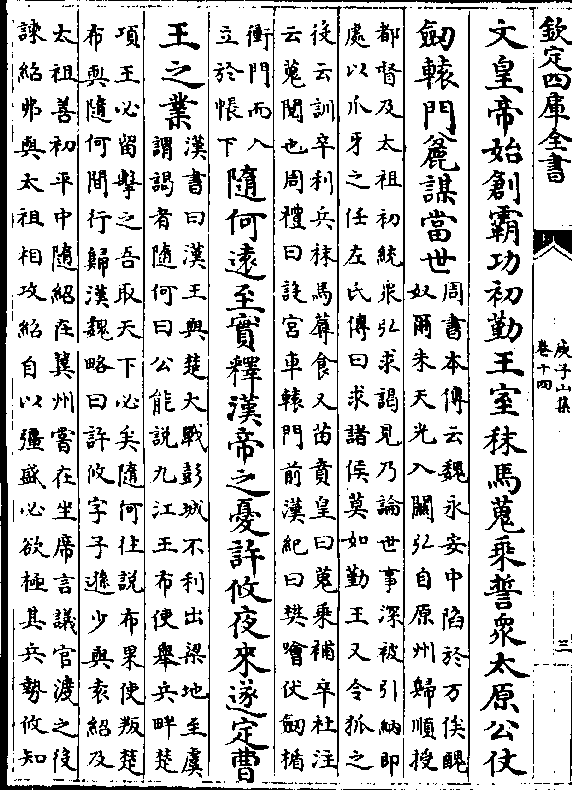 欽定四庫全書
庾子山集
卷十四
三
文皇帝始創霸功初勤王室秣馬蒐乘誓衆太原公仗
劔轅門麄謀當世
周書本傳云魏永安中陷於万俟醜
奴爾朱天光入關弘自原州歸順授
都督及太祖初統衆弘求謁見乃論世事深被引納即
處以爪牙之任左氏傳曰求諸侯莫如勤王又令狐之
從云訓卒利兵秣馬蓐食又苗賁皇曰蒐乘補卒杜注
云蒐閲也周禮曰設宮車轅門前漢紀曰樊噲伏劔楯
衝門而入
立於帳下
隨何遠至實釋漢帝之憂許攸夜來遂定曹
王之業
漢書曰漢王與楚大戰彭城不利出梁地至虞
謂謁者隨何曰公能說九江王布使舉兵畔楚
項王必留擊之吾取天下必矣隨何往說布果使叛楚
布與隨何間行歸漢魏略曰許攸字子遠少與袁紹及
太祖善初平中隨紹在冀州嘗在坐席言議官渡之役
諫紹弗與太祖相攻紹自以彊盛必欲極其兵勢攸知